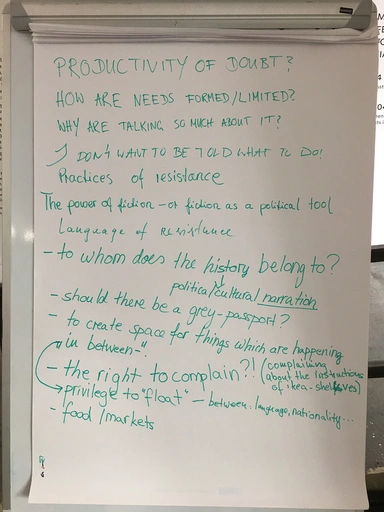 PRODUCTIVITY OF DOUBT?
HOW ARE NEEDS FORMED/LIMITED?
WHY ARE TALKING SO MUCH ABOUT IT?
I DON'T WANT TO BE TOLD WHAT TO DO!
Practices of resistance
The power of fiction – or fiction as a political tool
Language of Resistance
- to whom does the history belong to?
political/cultural narration
- should there be a grey-passport?
- to create space for things which are happening
"in between-".
- the right to complain?! (complaining
about the instructions
of ikea-shelves)
privilege to "float" – between: language, nationality...
- food/markets